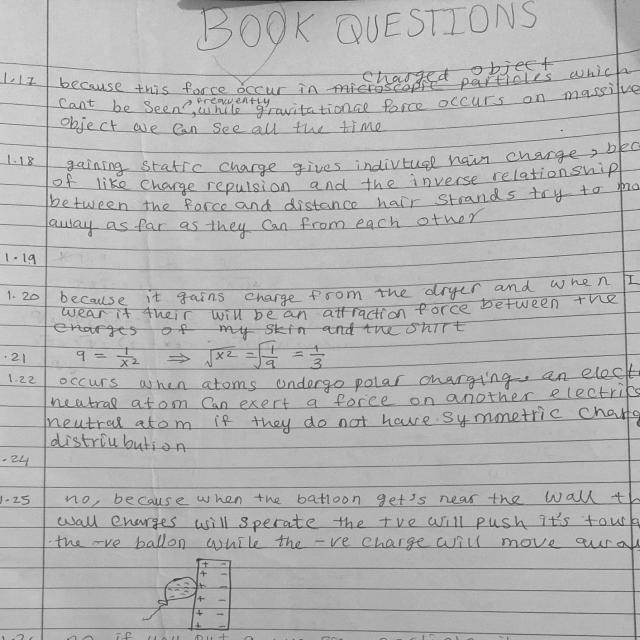 BOOK QUESTIONS
1.17 because this force occur in microscopic charged object particles which
cant be seen frequently, while gravitational force occurs on massive
object we can see all the time
1.18 gaining static charge gives indivtual hair charge, bec
of like charge repulsion and the inverse relationship
between the force and distance hair strands try to mo
away as far as they can from each other
1.19
1.20 because it gains charge from the dryer and when I
wear it their will be an attraction force between the
charges of my skin and the shirt
.21 9 = 1/x2 ⇒ √x2 = √1/9 = 1/3
1.22 occurs when atoms undergo polar charging an elect
neutral atom can exert a force on another electric
neutral atom if they do not have symmetric charg
distriubution
.24
1.25 no, because when the balloon get's near the wall th
wall charges will sperate the +ve will push it's towa
the -ve ballon while the -ve charge will move away
+ -
+ -
+ -
+ -
+ -
+ -
no if you put a